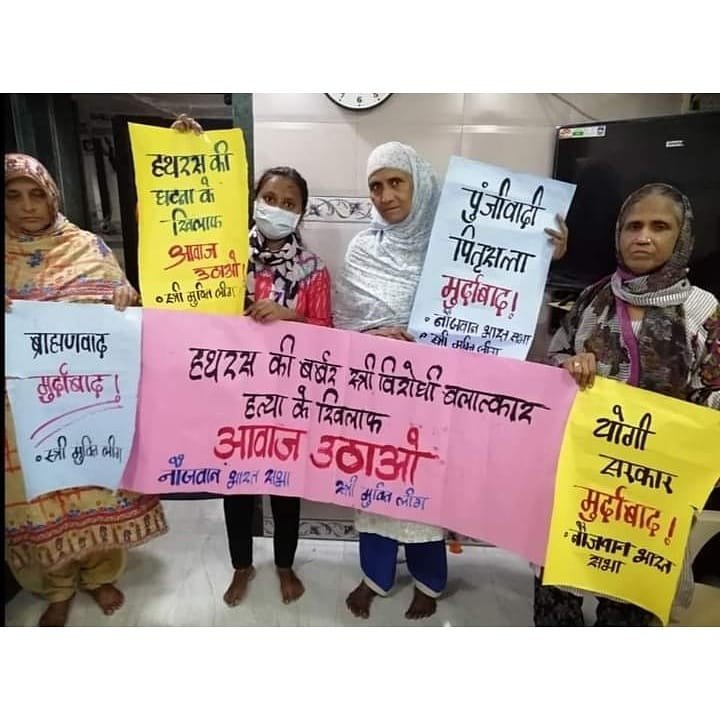 हथरस की
घटना के
खिलाफ
आवाज
उठाओ!
• स्त्री मुक्ति लीग
पुंजीवादी
पितृसत्ता
मुर्दाबाद!
• नौजवान भारत सभा
• स्त्री मुक्ति लीग
ब्राह्मणवाद
मुर्दाबाद!
• स्त्री मुक्ति लीग
हथरस की बर्बर स्त्री विरोधी बलात्कार
हत्या के खिलाफ
आवाज उठाओ
नौजवान भारत सभा
स्त्री मुक्ति लीग
योगी
सरकार
मुर्दाबाद!
• नौजवान भारत
सभा